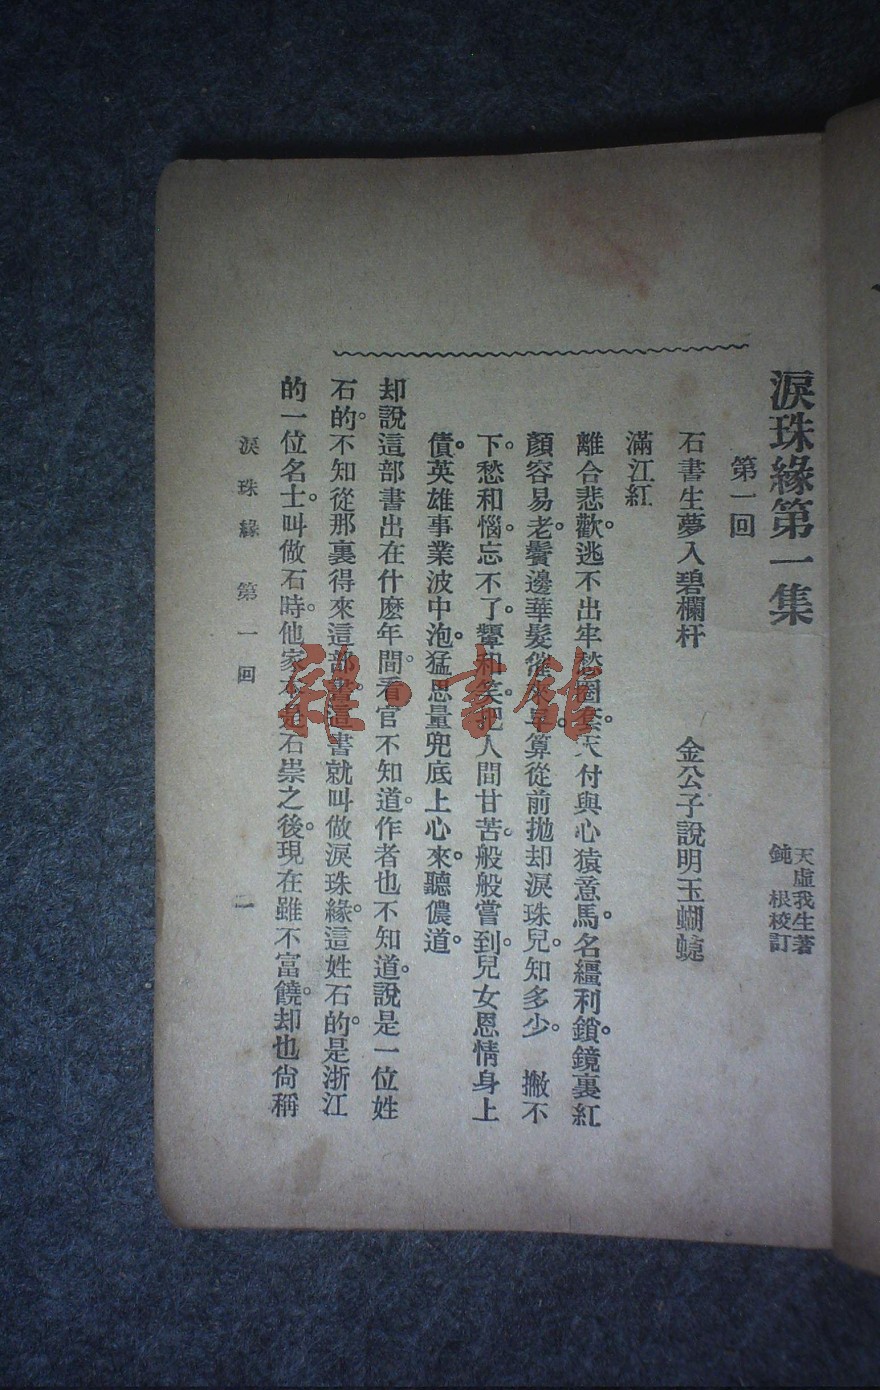 淚珠緣第一集
天虛我生著
鈍根校訂
第一回
石書生夢入碧欄杆 金公子說明玉蝴蝶
滿江紅
離合悲歡。逃不出牢愁圈套。天付與心猿意馬。名繮利鎖。鏡裏紅
顏容易老。鬢邊華髮催久早。算從前拋却淚珠兒。知多少。 撇不
下。愁和惱。忘不了。顰和笑。把人間甘苦。般般嘗到。兒女恩情身上
債。英雄事業波中泡。猛思量兜底上心來。聽儂道。
却說這部書出在什麽年間。看官不知道。作者也不知道。說是一位姓
石的。不知從那裏得來這部書。這書就叫做淚珠緣。這姓石的。是浙江
的一位名士。叫做石時。他家本是石崇之後。現在雖不富饒。却也尙稱
淚珠緣 第一回
一
雜·書館